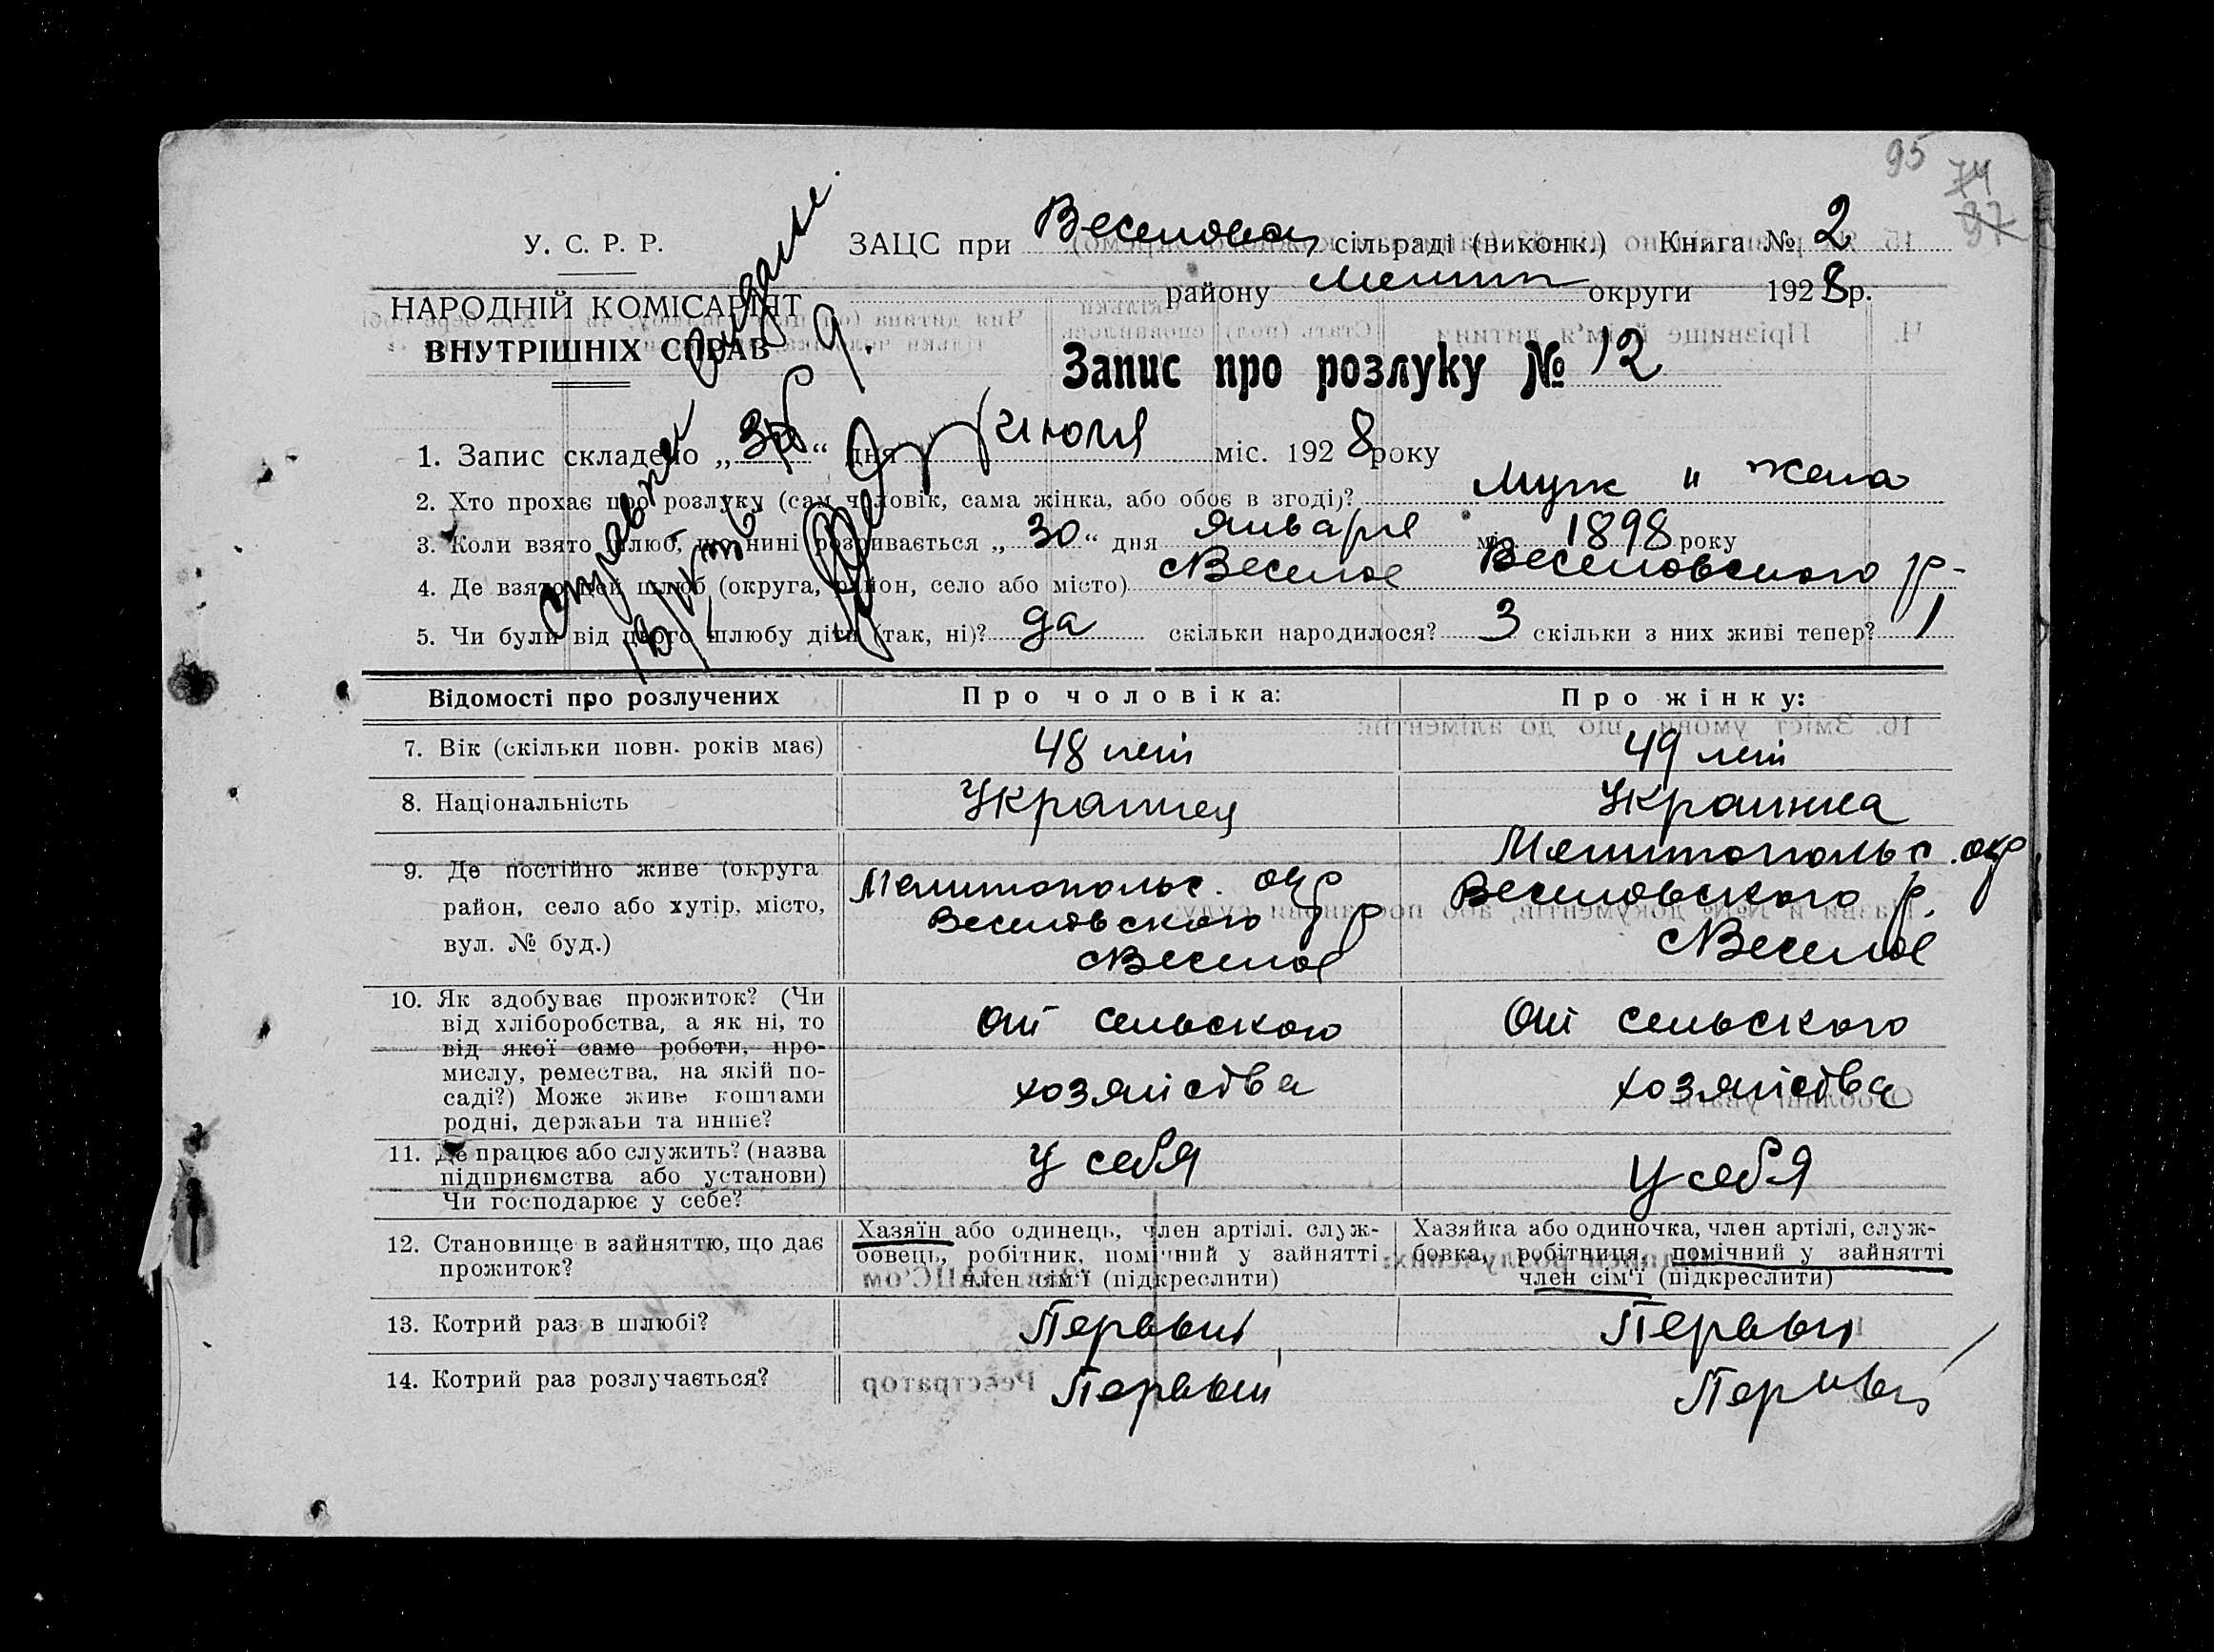 95
74
97
У. С. Р. Р.
НАРОДНІЙ КОМІСАРІЯТ
ВНУТРІШНІХ СПРАВ
ЗАЦС при Веселовск сільраді (виконк.) Книга № 2
району Мелит округи 1928 р.
Запис про розлуку № 12
справка выдана
1. Запис складено „ “ дня июля міс. 1928 року
2. Хто прохає про розлуку (сам чоловік, сама жінка, або обоє в згоді)? Муж и жена
3. Коли взято шлюб, що нині розривається „30“ дня января міс. 1898 року
4. Де взято цей шлюб (округа, район, село або місто) с Веселое Веселовского р-
5. Чи були від цього шлюбу діти (так, ні)? да скільки народилося? 3 скільки з них живі тепер? 1
Відомості про розлучених Про чоловіка: Про жінку:
7. Вік (скільки повн. років має) 48 лет 49 лет
8. Національність Украинец Украинка
9. Де постійно живе (округа
район, село або хутір, місто,
вул. № буд.)
Мелитопольс. окр
Веселовского р
с Веселое
Мелитопольс. окр
Веселовского р.
с Веселое
10. Як здобуває прожиток? (Чи
від хліборобства, а як ні, то
від якої саме роботи, про-
мислу, ремества, на якій по-
саді?) Може живе коштами
родні, держави та инше?
От сельского
хозяйства
От сельского
хозяйства
11. Де працює або служить? (назва
підприємства або установи)
Чи господарює у себе?
У себя
У себя
12. Становище в зайняттю, що дає
прожиток?
Хазяїн або одинець, член артілі. служ-
бовець, робітник, помічний у зайнятті
член сім'ї (підкреслити)
Хазяйка або одиночка, член артілі, служ-
бовка, робітниця, помічний у зайнятті
член сім'ї (підкреслити)
13. Котрий раз в шлюбі? Первый Первый
14. Котрий раз розлучається? Первый Первый